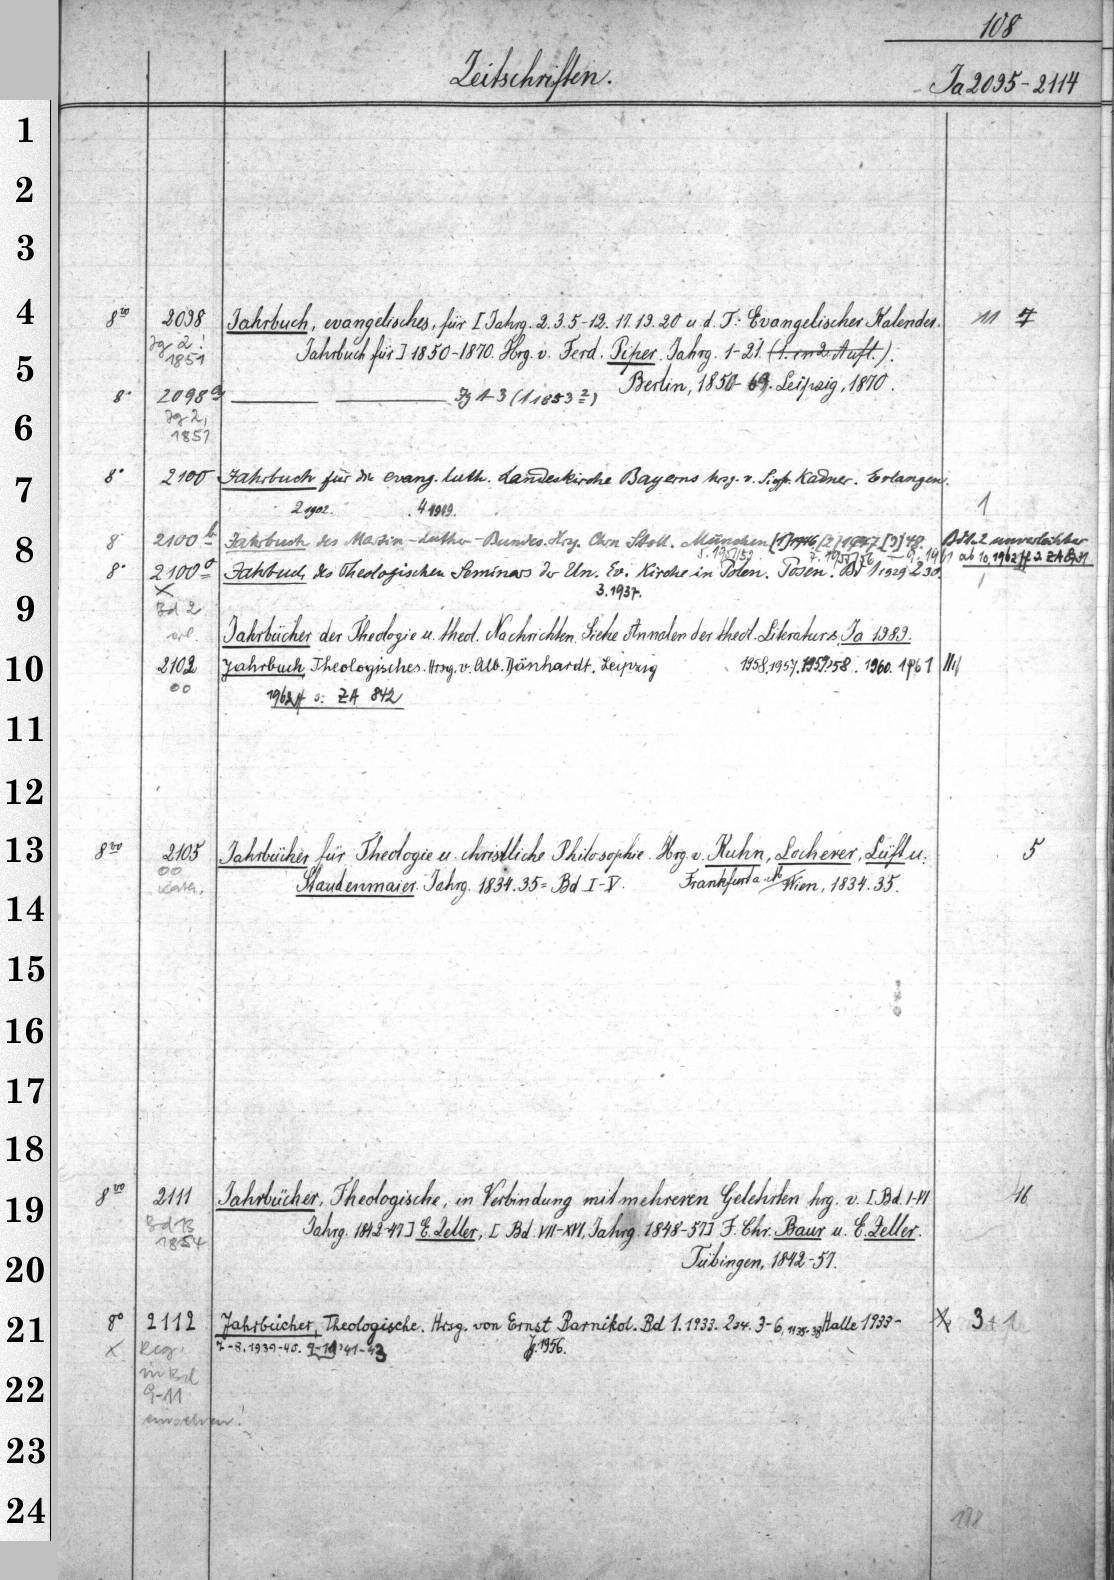 108
Zeitschriften.
Ia 2095-2114
1
2
3
4
8vo 2098 Jahrbuch, evangelisches, für [Jahrg. 2.3.5-12.17.19.20 u. d. T.: Evangelischer Kalender. 11 7
Jg 2: 1851 Jahrbuch für] 1850-1870. Hrg. v. Ferd. Piper. Jahrg. 1-21. (1. in 2. Aufl.).
5
Berlin, 1850-69. Leipzig, 1870.
8° 2098a Jg 1-3 (1 1853 2)
6
Jg 2, 1851
7
8° 2100 Jahrbuch für die evang. luth. Landeskirche Bayerns hrg. v. Siegfr. Kadner. Erlangen.
2 1902. 4 1919. 1
8
8° 2100b Jahrbuch des Martin-Luther-Bundes. Hrg. Chrn Stoll. München [1] 1946 [2] 1947 [3] 48. Bd 1. 2 unverleihbar
5. 1951/52 7. 1957/58 9. 1961 ab 10, 1962 ff s. ZA
8° 2100a Jahrbuch des Theologischen Seminars der Un. Ev. Kirche in Polen. Posen. Bd 1 1929 2 30. 1
3. 1937.
9
Bd 2
Jahrbücher der Theologie u. theol. Nachrichten. Siehe Annalen der theol. Literatur s. Ia 1989.
10
2102 Jahrbuch, Theologisches. Hrsg. v. Alb. Dänhardt. Leipzig 1958, 1957, 1957/58. 1960. 1961
1962 ff s: ZA 842
11
12
13
8vo 2105 Jahrbücher für Theologie u. christliche Philosophie. Hrg. v. Kuhn, Locherer, Lüft u. 5
Staudenmaier. Jahrg. 1834.35 = Bd I-V. Frankfurt a. M. Wien, 1834.35.
14
15
16
17
18
19
8vo 2111 Jahrbücher, Theologische, in Verbindung mit mehreren Gelehrten hrg. v. [Bd I-VI 16
Bd 13 1854 Jahrg. 1842-47] E. Zeller, [Bd VII-XVI, Jahrg. 1848-57] F. Chr. Baur u. E. Zeller.
20
Tübingen, 1842-57.
21
8° 2112 Jahrbücher, Theologische. Hrsg. von Ernst Barnikol. Bd 1. 1933. 2 34. 3-6, 1935-38 Halle 1933- X 3 + 1
X Reg. in Bd 9-11 7-8. 1939-40. 9-11 '41-43 J. 1956.
22
einsehen!
23
24